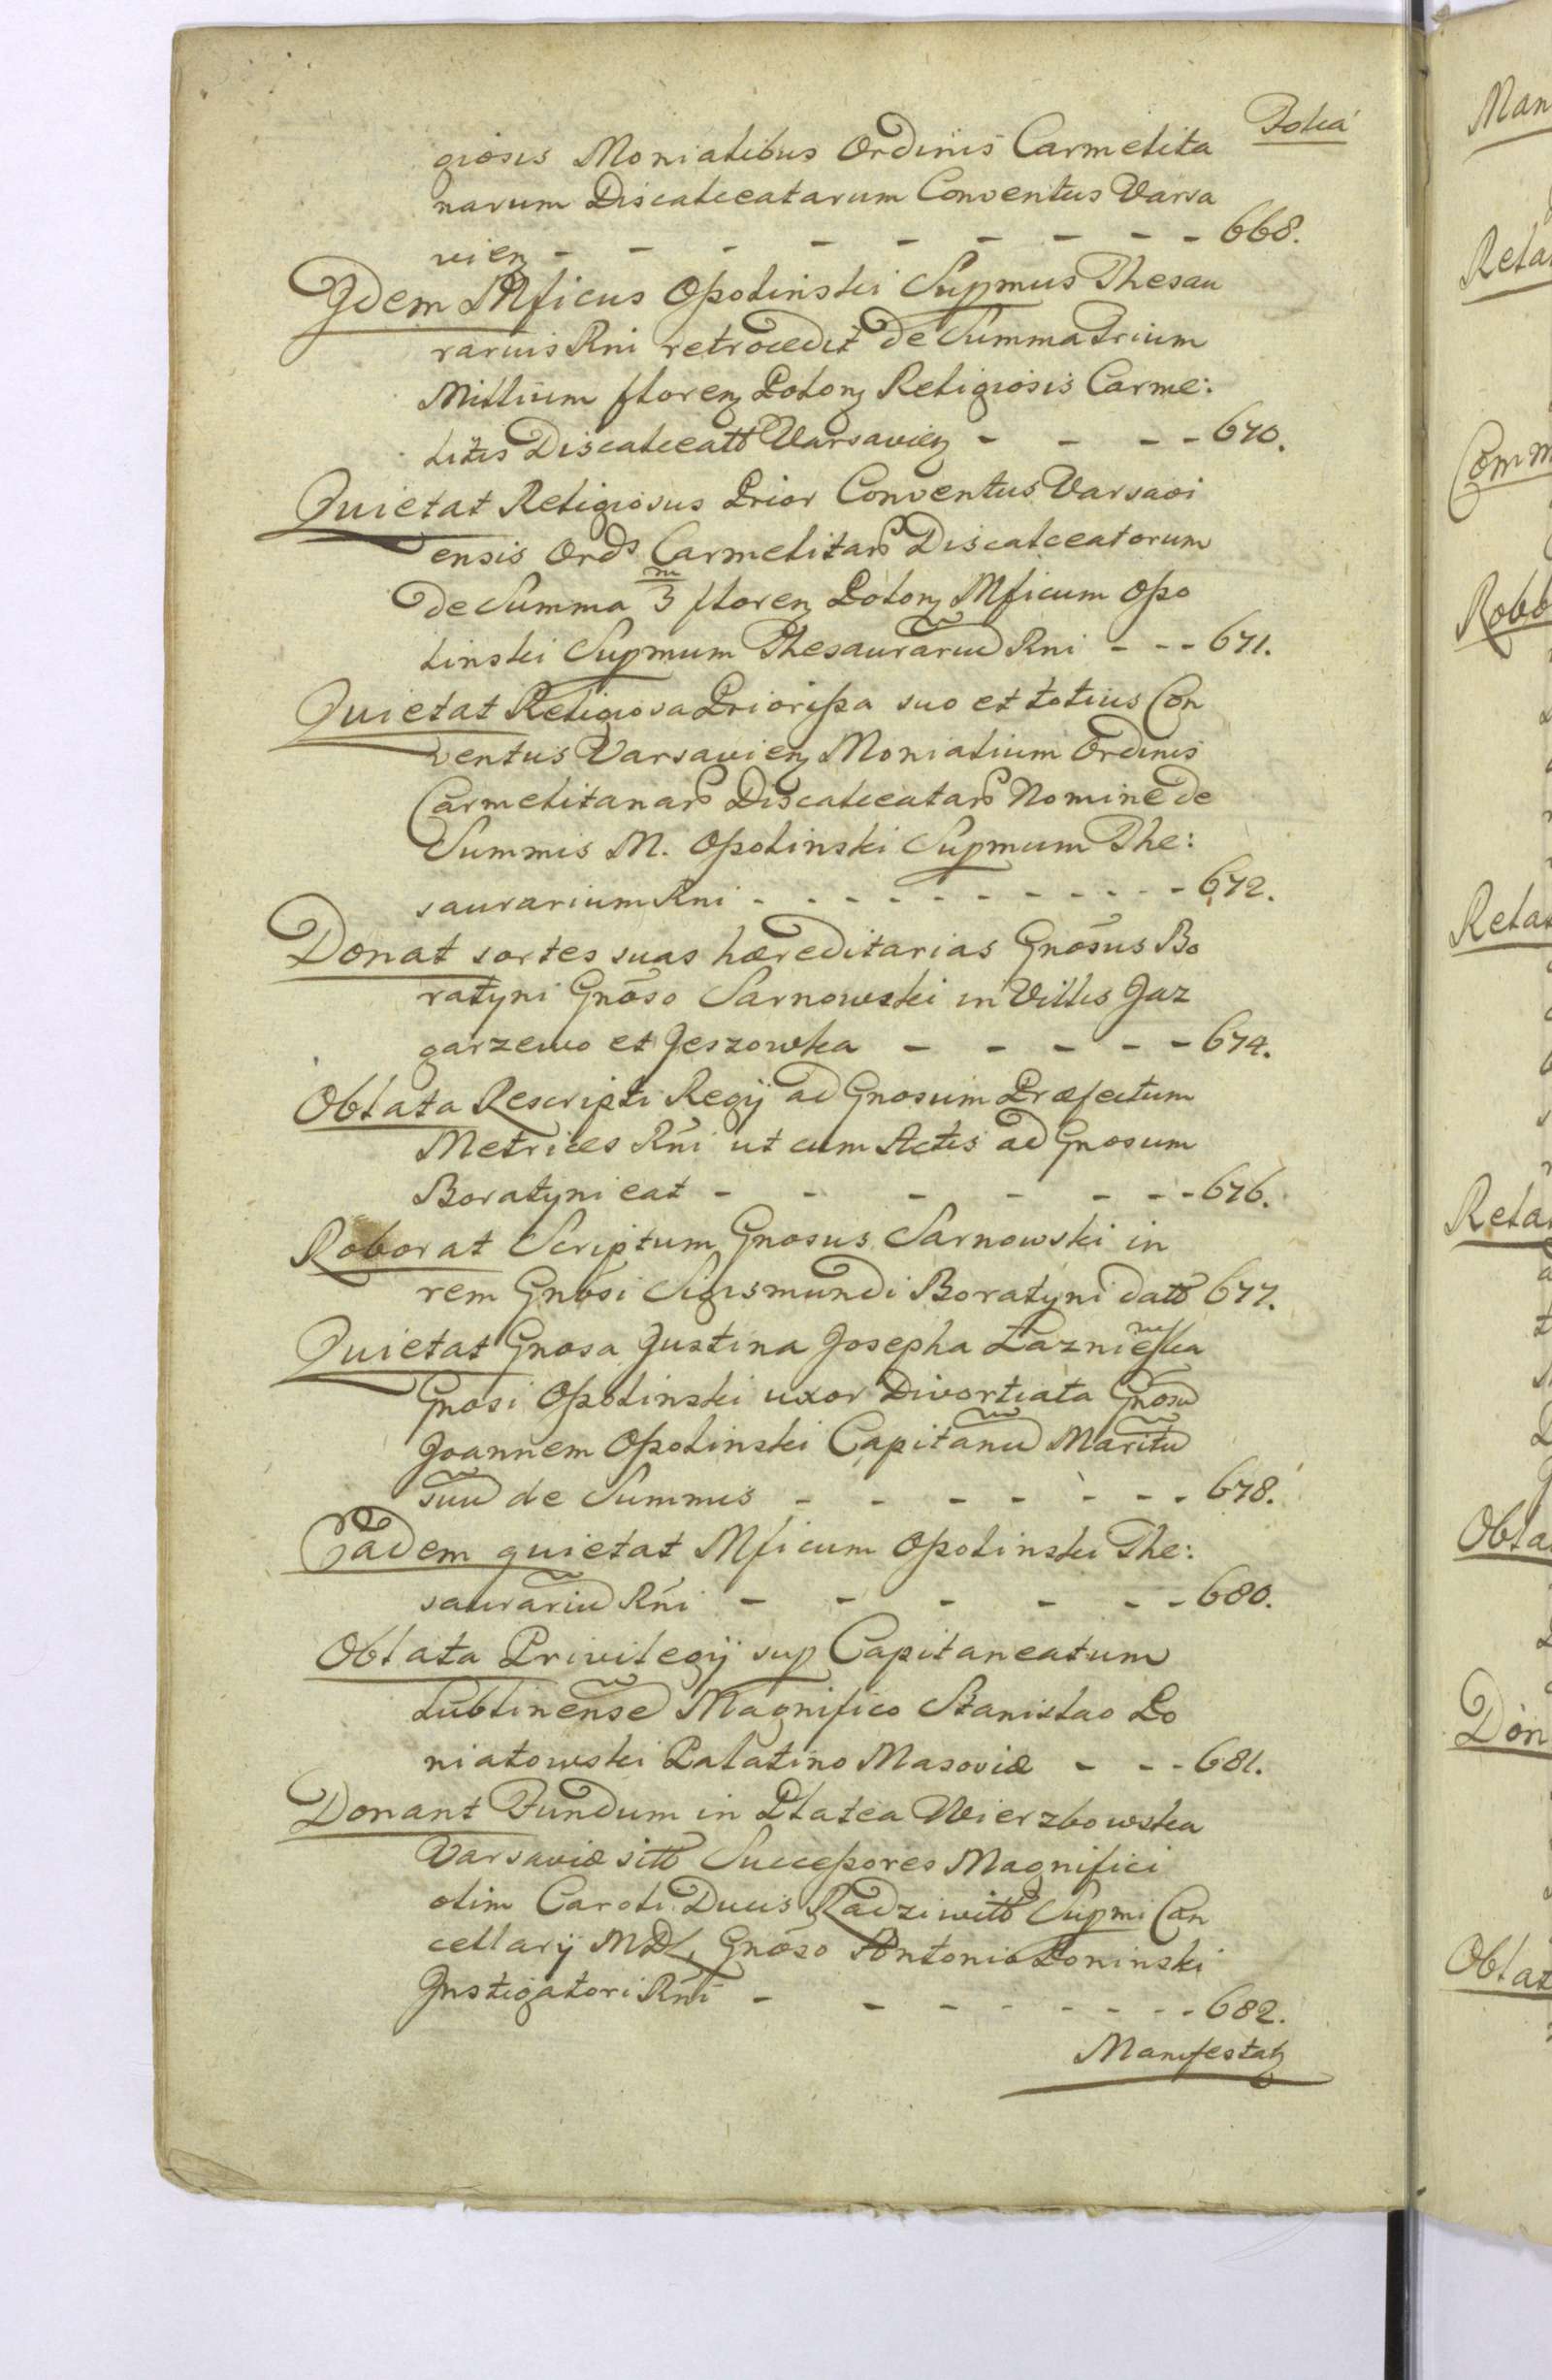 Folia
giosis Monialibus Ordinis Carmelita
narum Discalceatarum Conventus Varsa
vien - - - - - - - - - 668.
Idem Mficus Opolinski Supmus Thesau
rarius Rni retrocedit de Summa Trium
Millium floren Polon Religiosis Carme:
litis Discalceatt Varsavien - - - - 670.
Quietat Religiosus Prior Conventus Varsavi
ensis Ords Carmelitar Discalceatorum
de Summa 3/m floren Polon Mficum Opo
linski Supmum Thesaurariu Rni - - - 671.
Quietat Religiosa Priorissa suo et totius Con
ventus Varsavien Monialium Ordinis
Carmelitanar Discalceatar Nomine de
Summis M. Opolinski Supmum The:
saurarium Rni - - - - - - - - - - 672.
Donat sortes suas hæreditarias Gnosus Bo
ratyni Gnoso Sarnowski in Villis Jaz
garzewo et Jeszowka - - - - - 674.
Oblata Rescripti Regij ad Gnosum Præfectum
Metrices Rni ut cum Actis ad Gnosum
Boratyni eat - - - - - - - 676.
Roborat Scriptum Gnosus Sarnowski in
rem Gnosi Sigismundi Boratyni datt 677.
Quietat Gnosa Justina Josepha Łazniewska
Gnosi Opolinski uxor Divortiata Gnosu
Joannem Opolinski Capitanu Maritu
suu de Summis - - - - - - - 678.
Eadem quietat Mficum Opolinski The:
saurariu Rni - - - - - - 680.
Oblata Privilegij sup Capitaneatum
Lublinense Magnifico Stanislao Po
niatowski Palatino Masoviæ - - - 681.
Donant Fundum in Platea Wierzbowska
Varsaviæ sitt Successores Magnifici
olim Caroli Ducis Radziwill Supmi Can
cellarij MDL, Gnoso Antonio Poninski
Instigatori Rni - - - - - - - - 682.
Manifestat
Man
Comm
Robb
Retat
Don
Oblat